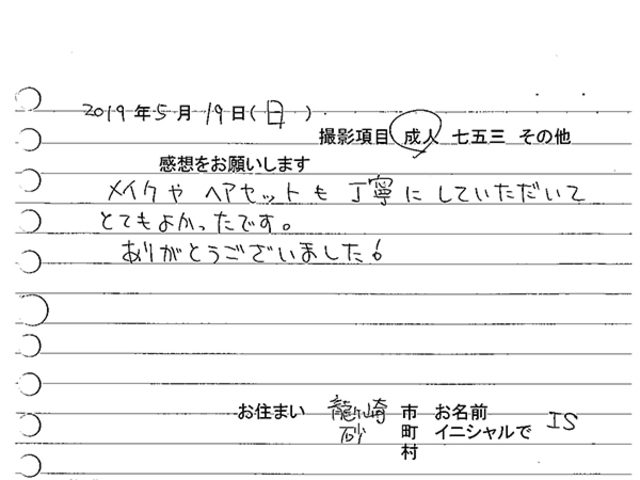 2019年5月19日(日)
撮影項目 成人 七五三 その他
感想をお願いします
メイクや ヘアセットも 丁寧にしていただいて
とてもよかったです。
ありがとうございました!
お住まい 龍ヶ崎 市 お名前
砂 町 イニシャルで IS
村